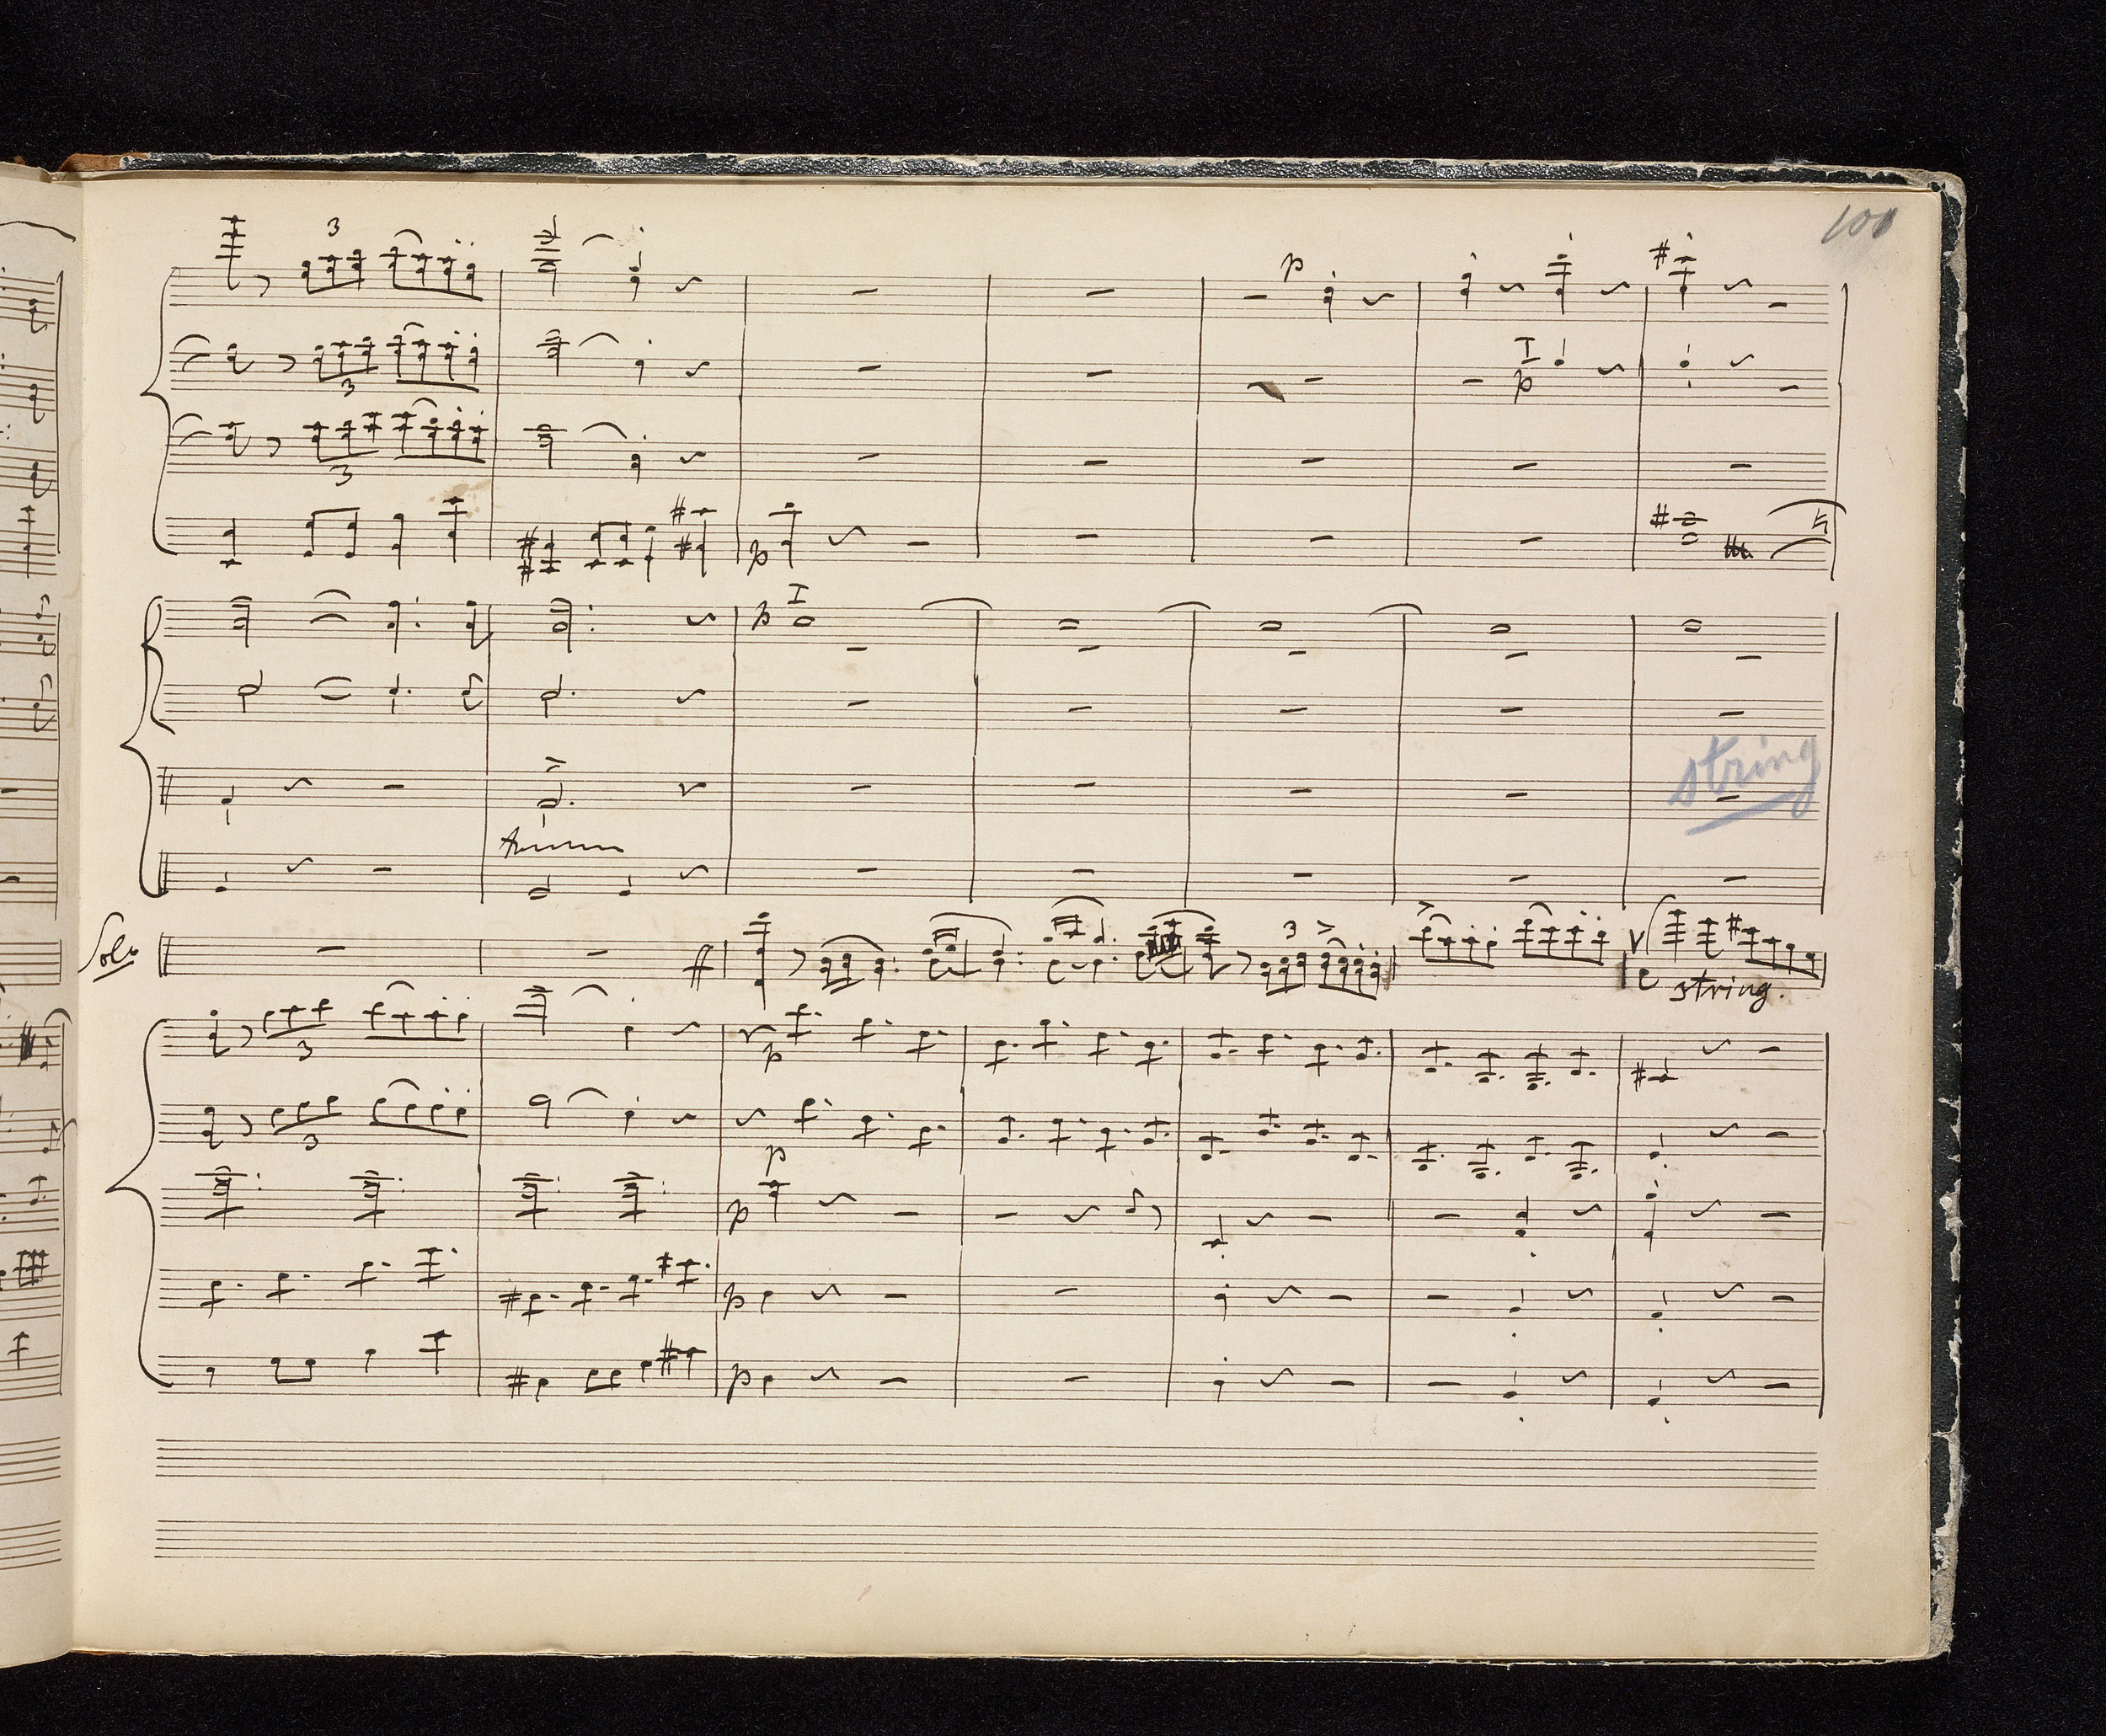 101
3
3
3
p
I
p
p
p I
string
tr
Solo
ff
3
string.
3
p
3
p
p
p
p